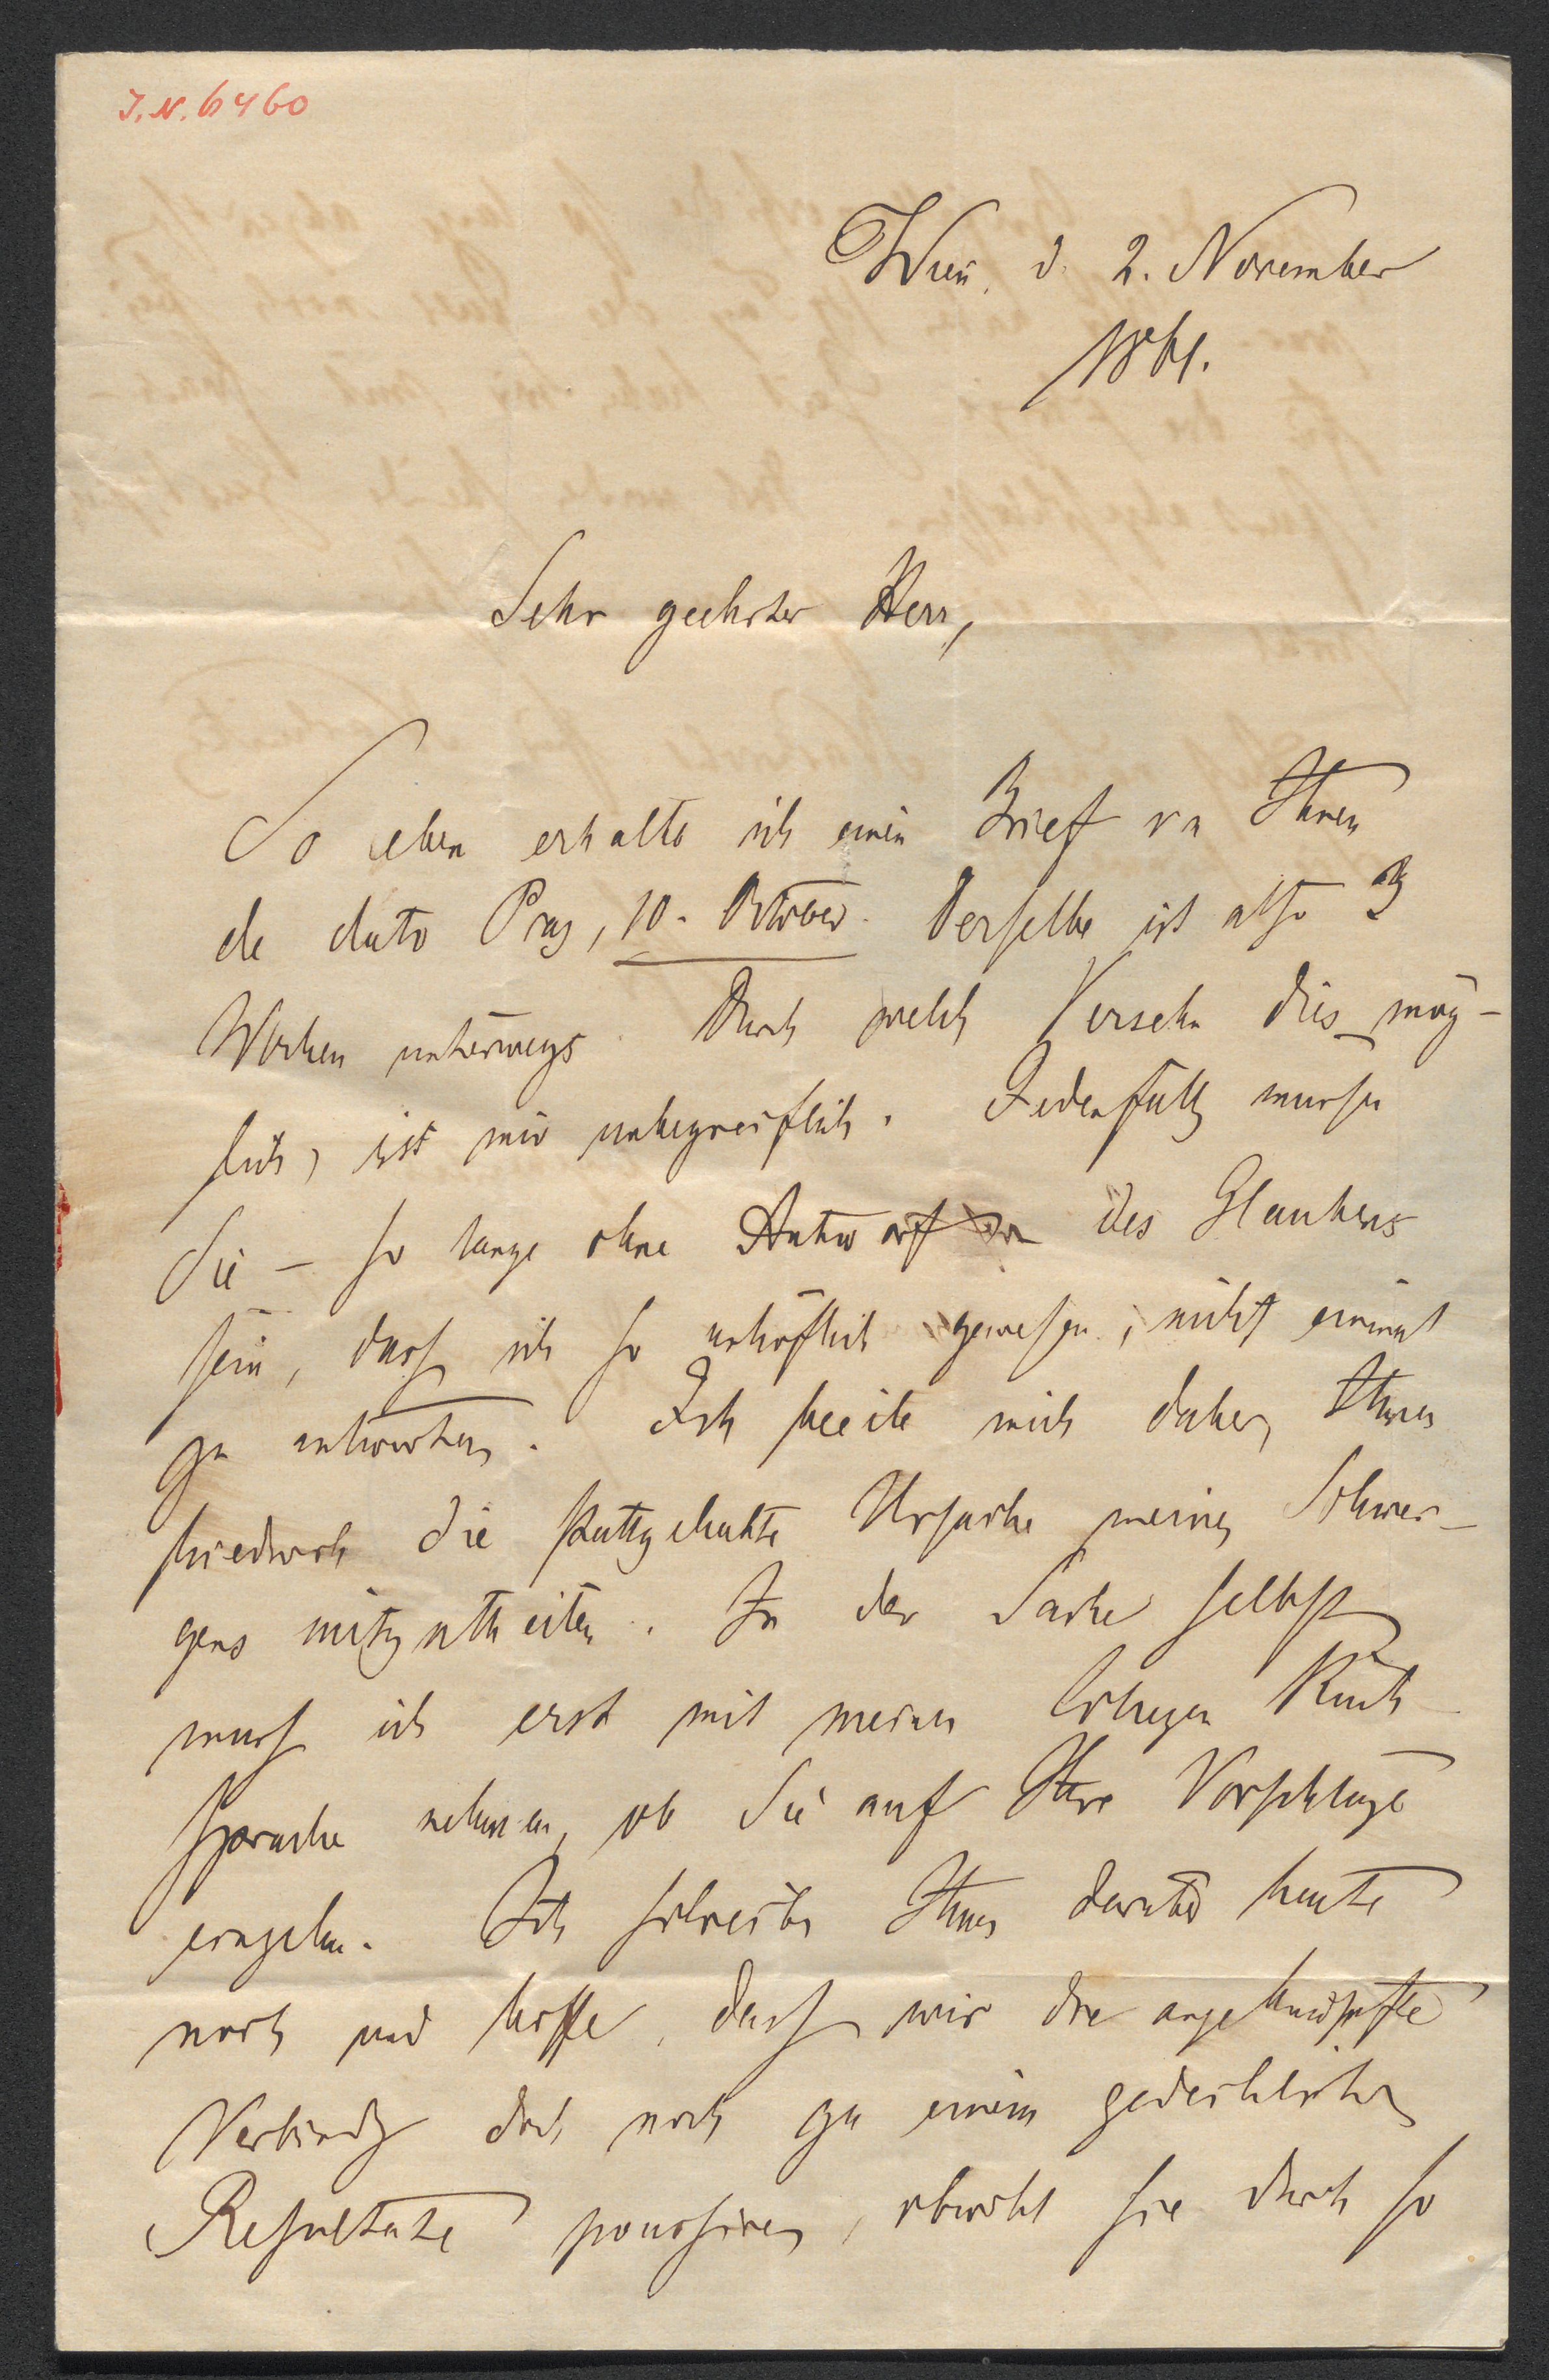 J. N. 6460
Wien, d. 2. November
1861.
Sehr geehrter Herr,
So eben erhalte ich einen Brief von Ihnen
de dato Prag, 10. October. Derselbe ist also 3
Wochen unterwegs. Durch welch Versehn dies mög-
lich, ist mir unbegreiflich. Jedenfalls mussen
Sie – so lange ohne Antwort des Glaubens
sein, dass ich so unhöflich gewesen, nicht einmal
zu antworten. Ich beeile mich daher, Ihnen
hiedurch die stattgehabte Ursache meines Schwei-
gens mitzutheilen. In der Sache selbst
muss ich erst mit meinen Collegen Rück-
sprache nehmen, ob Sie auf Ihre Vorschläge
eingehn. Ich schreibe Ihnen darüber heute
noch und hoffe, dass wir die angeknüpfte
Verbindg doch noch zu einem gedeihlichen
Resultate poussiren, obwohl sie durch so